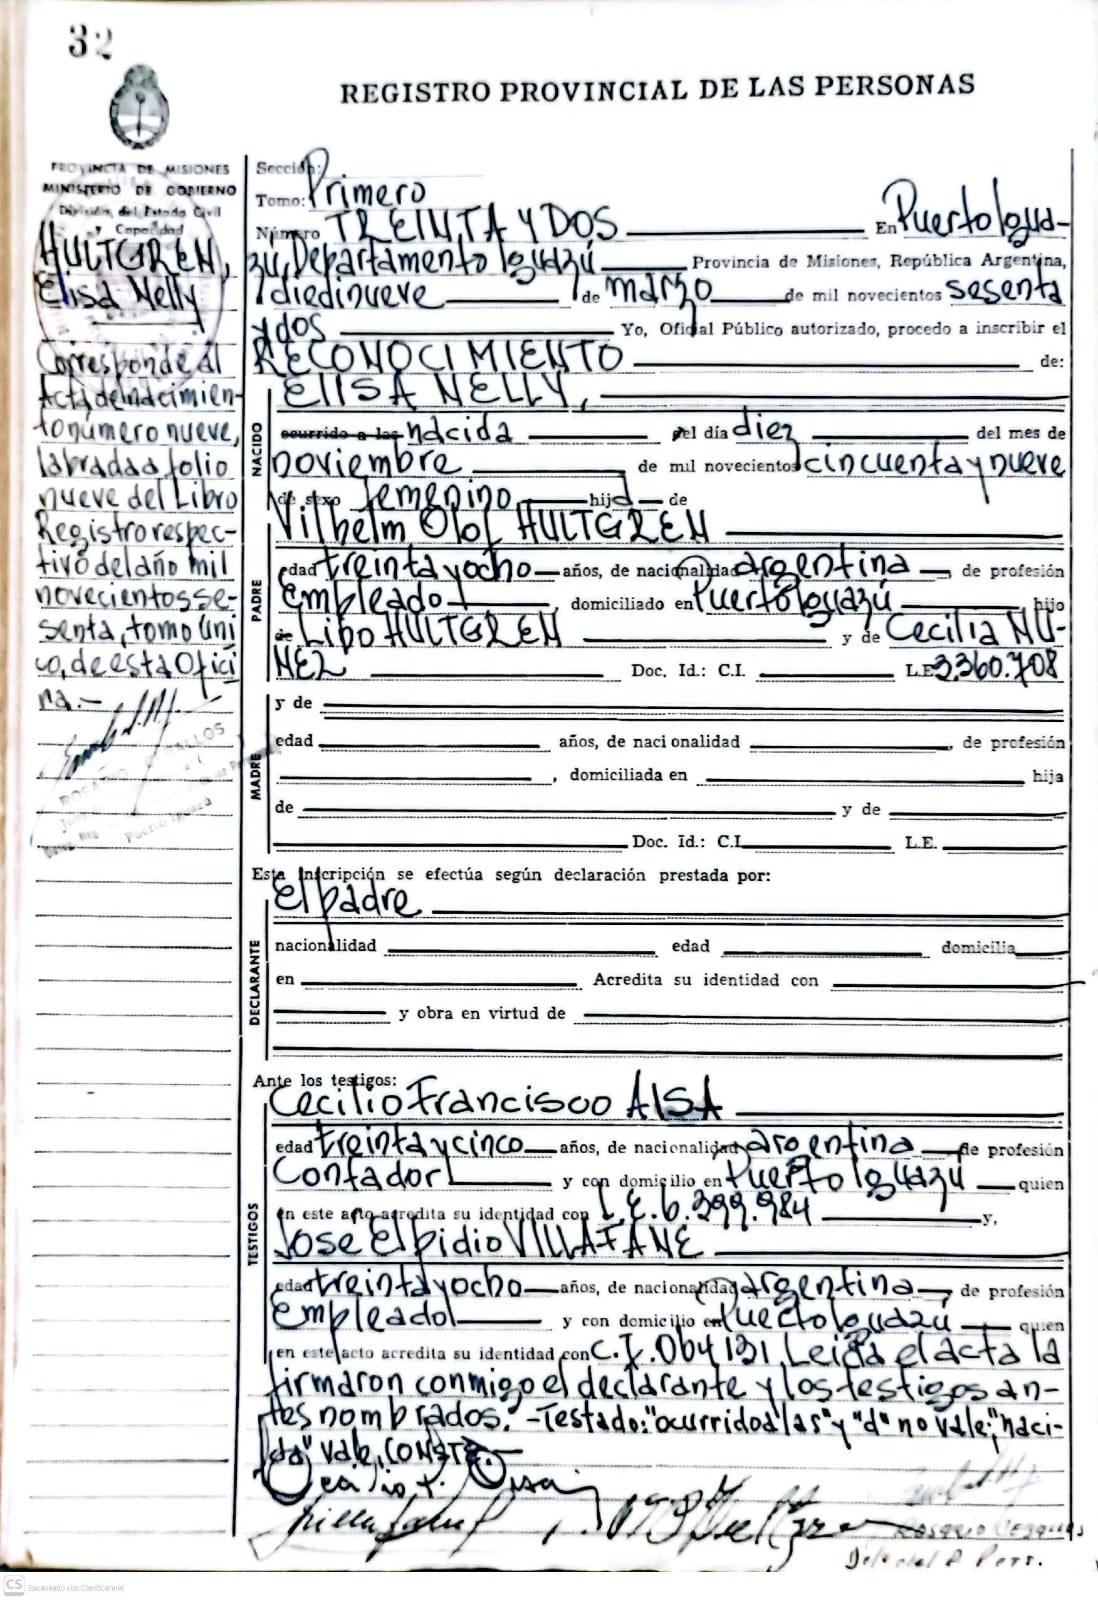 32
REGISTRO PROVINCIAL DE LAS PERSONAS
PROVINCIA DE MISIONES
MINISTERIO DE GOBIERNO
División del Estado Civil
y Capacidad
HULTGREN,
Elisa Nelly
Corresponde al
Acta de nacimien-
to número nueve,
labrada a folio
nueve del Libro
Registro respec-
tivo del año mil
novecientos se-
senta, tomo úni
co, de esta Ofici
na.-
Puerto Iguazú
Sección:
Tomo: Primero
Número TREINTA Y DOS En Puerto Igua-
zú, Departamento Iguazú Provincia de Misiones, República Argentina,
diecinueve de marzo de mil novecientos sesenta
y dos Yo, Oficial Público autorizado, procedo a inscribir el
RECONOCIMIENTO de:
NACIDO
ELISA NELLY,
ocurrido a las nacida del día diez del mes de
noviembre de mil novecientos cincuenta y nueve
de sexo femenino hija de
PADRE
Vilhelm Olof HULTGREN
edad treinta y ocho años, de nacionalidad argentina, de profesión
Empleado, domiciliado en Puerto Iguazú hijo
de Libo HULTGREN y de Cecilia NU-
ÑEZ Doc. Id.: C.I. L.E. 3.360.708
MADRE
y de
edad años, de nacionalidad, de profesión
, domiciliada en hija
de y de
Doc. Id.: C.I. L.E.
Esta inscripción se efectúa según declaración prestada por:
DECLARANTE
El padre.
nacionalidad edad domicilia
en Acredita su identidad con
y obra en virtud de
Ante los testigos:
TESTIGOS
Cecilio Francisco AISA
edad treinta y cinco años, de nacionalidad argentina de profesión
Contador y con domicilio en Puerto Iguazú quien
en este acto acredita su identidad con L.E. 6.399.984 y,
José Elpidio VILLAFAÑE
edad treinta y ocho años, de nacionalidad argentina, de profesión
Empleado y con domicilio en Puerto Iguazú quien
en este acto acredita su identidad con C.I. 064131. Leida el acta la
firmaron conmigo el declarante y los testigos an-
tes nombrados. -Testado: "ocurrido a las" y "d" no vale; "naci-
da" vale, CONSTE.-
Escaneado con CamScanner